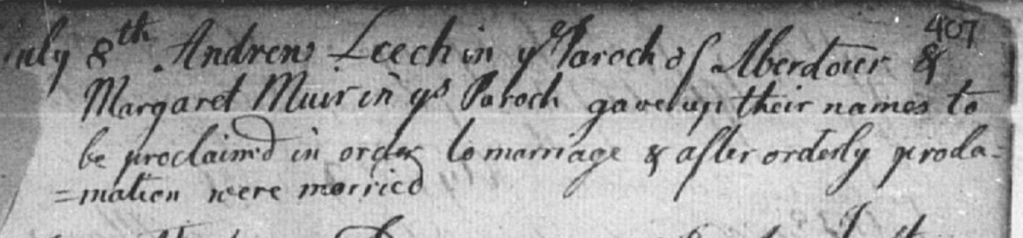 407
July 8th Andrew Leech in ye Paroch of Aberdour &
Margaret Muir in ys Paroch gave up their names to
be proclaim'd in order to marriage & after orderly procla-
=mation were married